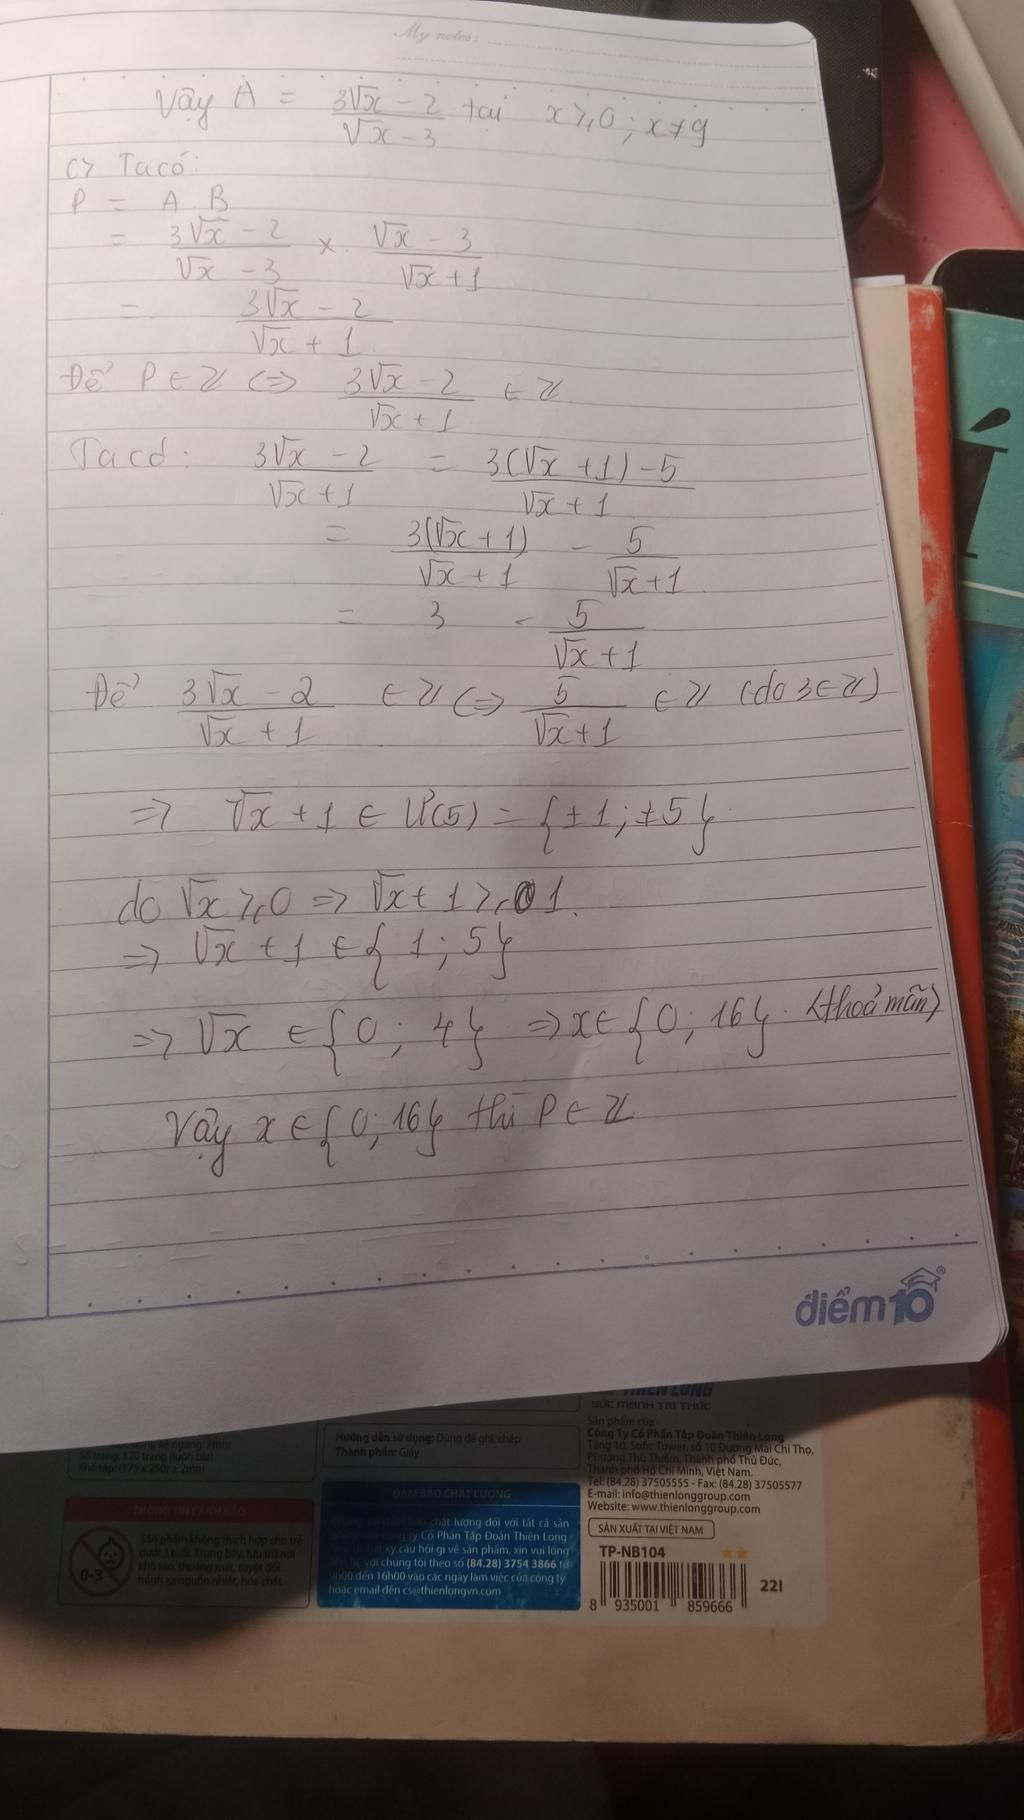 My notes:
Vậy A = \frac{3\sqrt{x} - 2}{\sqrt{x} - 3} tại x ≥ 0 ; x ≠ 9
c> Ta có:
P = A . B
= \frac{3\sqrt{x} - 2}{\sqrt{x} - 3} × \frac{\sqrt{x} - 3}{\sqrt{x} + 1}
= \frac{3\sqrt{x} - 2}{\sqrt{x} + 1}
Để P ∈ Z <=> \frac{3\sqrt{x} - 2}{\sqrt{x} + 1} ∈ Z
Ta có: \frac{3\sqrt{x} - 2}{\sqrt{x} + 1} = \frac{3(\sqrt{x} + 1) - 5}{\sqrt{x} + 1}
= \frac{3(\sqrt{x} + 1)}{\sqrt{x} + 1} - \frac{5}{\sqrt{x} + 1}
= 3 - \frac{5}{\sqrt{x} + 1}
Để \frac{3\sqrt{x} - 2}{\sqrt{x} + 1} ∈ Z <=> \frac{5}{\sqrt{x} + 1} ∈ Z (do 3 ∈ Z)
=> \sqrt{x} + 1 ∈ Ư(5) = {±1; ±5}
do \sqrt{x} ≥ 0 => \sqrt{x} + 1 ≥ 1.
=> \sqrt{x} + 1 ∈ {1; 5}
=> \sqrt{x} ∈ {0; 4} => x ∈ {0; 16}. (thoả mãn)
Vậy x ∈ {0; 16} thì P ∈ Z
điểm10
THIEN LONG
SỨC MẠNH TRI THỨC
Sản phẩm của
Công Ty Cổ Phần Tập Đoàn Thiên Long
Tầng 10, Sofic Tower, số 10 Đường Mai Chí Thọ,
Phường Thủ Thiêm, Thành phố Thủ Đức,
Thành phố Hồ Chí Minh, Việt Nam.
Tel: (84.28) 37505555 - Fax: (84.28) 37505577
E-mail: info@thienlonggroup.com
Website: www.thienlonggroup.com
SẢN XUẤT TẠI VIỆT NAM
TP-NB104
22I
8 935001 859666
kẻ ngang: 7mm
Số trang: 120 trang (luôn bìa)
Khổ tập: (175 x 250) ± 2mm
Hướng dẫn sử dụng: Dùng để ghi, chép
Thành phần: Giấy
THÔNG TIN CẢNH BÁO
0-3
Sản phẩm không thích hợp cho trẻ
dưới 3 tuổi. Trưng bày, lưu trữ nơi
khô ráo, thoáng mát, tuyệt đối
tránh xa nguồn nhiệt, hóa chất.
ĐẢM BẢO CHẤT LƯỢNG
chất lượng đối với tất cả sản
ty Cổ Phần Tập Đoàn Thiên Long
kỳ câu hỏi gì về sản phẩm, xin vui lòng
với chúng tôi theo số (84.28) 3754 3866 từ
đến 16h00 vào các ngày làm việc của công ty
hoặc email đến cs@thienlongvn.com